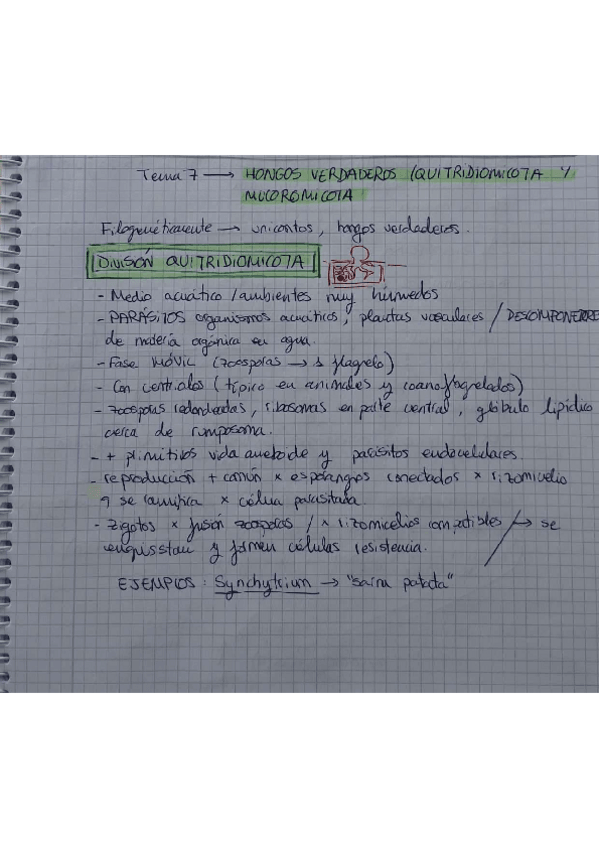 Tema 7 → HONGOS VERDADEROS (QUITRIDIOMICOTA Y
MUCOROMICOTA
Filogenéticamente → unicontos, hongos verdaderos.
DIVISIÓN QUITRIDIOMICOTA
- Medio acuático / ambientes muy húmedos
- PARÁSITOS organismos acuáticos, plantas vasculares / DESCOMPONEDORES
de materia orgánica en agua.
- Fase MÓVIL (zoosporas → 1 flagelo)
- Con centriolos (típico en animales y coanoflagelados)
- zoosporas redondeadas, ribosomas en parte central, glóbulo lipídico
cerca de rumposoma.
- + primitivos vida ameboide y parásitos endocelulares.
- reproducción + común x esporangios conectados x rizomicelio
q se ramifica x célula parasitada.
- Zigotos x fusión zoosporas / x rizomicelios compatibles → se
enquistan y forman células resistencia.
EJEMPLOS: Synchytrium → "sarna patata"